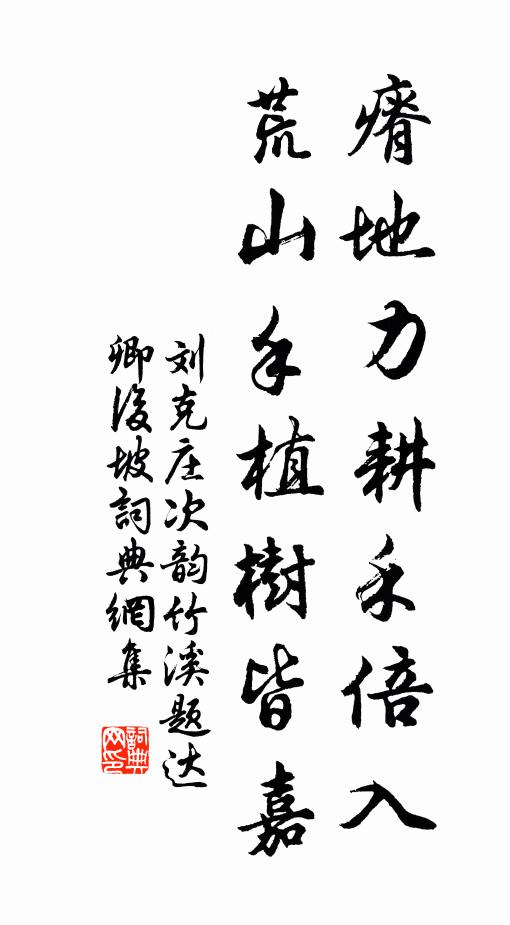 瘠地力耕禾倍入
荒山手植樹皆嘉
刘克庄次韵竹溪题达
卿後坡詞典網集
詞典网印